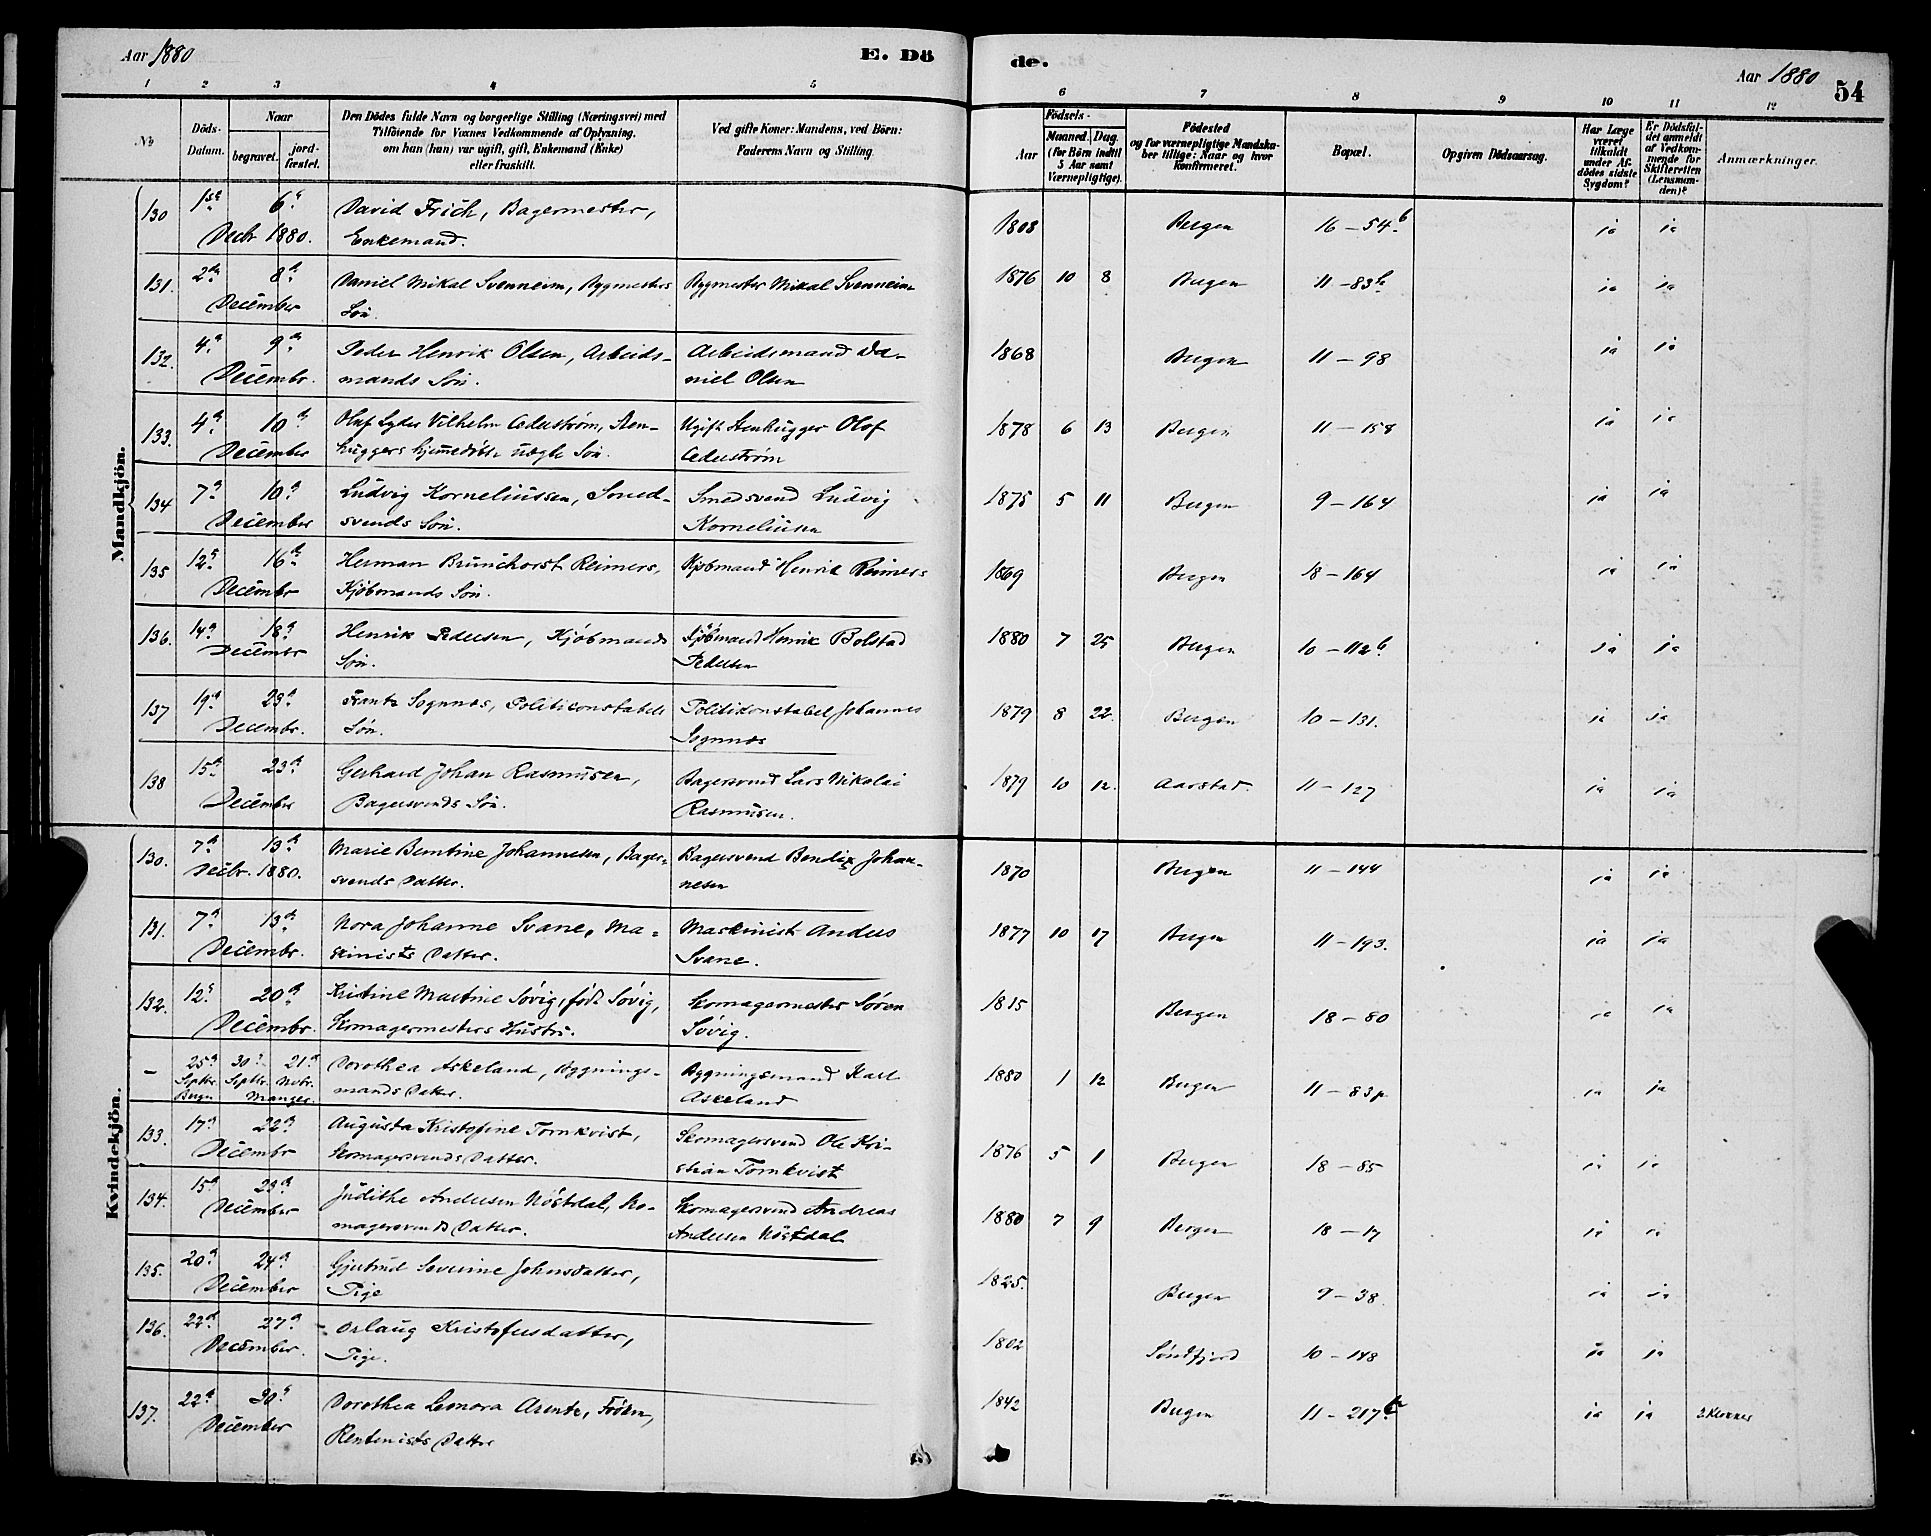 Aar 1880
E. Dö
de.
Aar 1880
54
1 2 3 4 5 6 7 8 9 10 11 12
No
Döds-Datum.
Naar
begravet.
jord-fæstet.
Den Dödes fulde Navn og borgerlige Stilling (Næringsvei) med
Tilföiende for Voxnes Vedkommende af Oplysning,
om han (hun) var ugift, gift, Enkemand (Enke)
eller fraskilt.
Ved gifte Koner: Mandens, ved Börn:
Faderens Navn og Stilling.
Födsels-
Aar
Maaned.
Dag.
(for Börn indtil
5 Aar samt
Værnepligtige).
Födested
og for værnepligtige Mandska-
ber tillige: Naar og hvor
konfirmeret.
Bopæl.
Opgiven Dödsaarsag.
Har Læge
været
tilkaldt
under Af-
dödes sidste
Sygdom?
Er Dödsfal-
det anmeldt
af Vedkom-
mende for
Skifteretten
(Lensman-
den)?
Anmærkninger.
Mandkjön.
130 1ste 6te David Frich, Bagermester, 1808 Bergen 16 – 54b ja ja
Decbr 1880. Enkemand.
131. 2den 8de Daniel Mikal Svenneim, Bygmesters Bygmester Mikal Svenneim 1876 10 8 Bergen 11 – 83b ja ja
December Søn.
132. 4de 9de Peder Henrik Olsen, Arbeids- Arbeidsmand Da- 1868 Bergen 11 – 98 ja ja
Decembr. mands Søn. niel Olsen
133. 4de 10de Oluf Lyder Vilhelm Cederstrøm, Sten- Ugift Stenhugger Olof 1878 6 13 Bergen 11 – 158 ja ja
December huggers hjemedøbte uægte Søn. Cederstrøm
134 7de 10de Ludvig Korneliussen, Smed- Smedsvend Ludvig 1875 5 11 Bergen 9 – 164 ja ja
December svends Søn. Korneliusen
135 12te 16de Herman Brunchorst Reimers, Kjøbmand Henrik Reimers 1869 Bergen 18 – 164 ja ja
Decembr Kjöbmands Søn.
136. 14de 18de Henrik Pedersen, Kjöbmands Kjöbmand Henrik Bolstad 1880 7 25 Bergen 10 – 112b ja ja
Decembr Søn. Pedersen
137 19de 23de Frantz Sognnæs, Politiconstabels Politikonstabel Johannes 1879 8 22. Bergen 10 – 131. ja ja
Decembr. Søn. Sognnæs
138 15de 23de Gerhard Johan Rasmusen, Bagersvend Lars Nikolai 1879 10 12. Aarstad. 11 – 127 ja ja
December Bagersvends Søn. Rasmusen.
Kvindekjön.
130. 7de 13de Marie Bentine Johannesen, Bager- Bagersvend Bendix Johan- 1870 Bergen 11 – 144 ja ja
Decbr. 1880. svends Datter. nesen
131. 7de 13de Nora Johanne Svane, Ma- Maskinist Anders 1877 10 17 Bergen 11 – 193. ja ja
Decembr. skinists Datter. Svane.
132. 12te 20de Kristine Martine Søvig, født Søvig, Skomagermester Søren 1815 Bergen 18 – 80 ja ja
Decembr. Skomagermesters Hustru. Søvig.
– 25de 30te 21de Dorothea Askeland, Bygnings- Bygningsmand Karl 1880 1 12 Bergen 11 – 83p ja ja
Septbr. Septbr. Novbr. mands Datter. Askeland
Bergen Manger.
133. 17de 22de Augusta Kristofine Tornkvist, Skomagersvend Ole Kri- 1876 5 1 Bergen 18 – 85 ja ja
Decembr Skomagersvends Datter. stian Tornkvist
134. 15de 23de Judithe Andersen Nøstdal, Sko- Skomagersvend Andreas 1880 7 9 Bergen 18 – 17 ja ja
December magersvends Datter. Andersen Nøstdal
135. 20de 24de Gjertrud Severine Johnsdatter, 1825. Bergen 9 – 38 ja ja
December Pige
136. 22de 27de Orlaug Kristofersdatter, 1802 Søndfjord 10 – 148 ja ja
December. Pige.
137. 22de 30te Dorothea Leonora Arentz, Frøken, 1842 Bergen 11 – 217 ja ja 2 Klokker
December Rentenists Datter